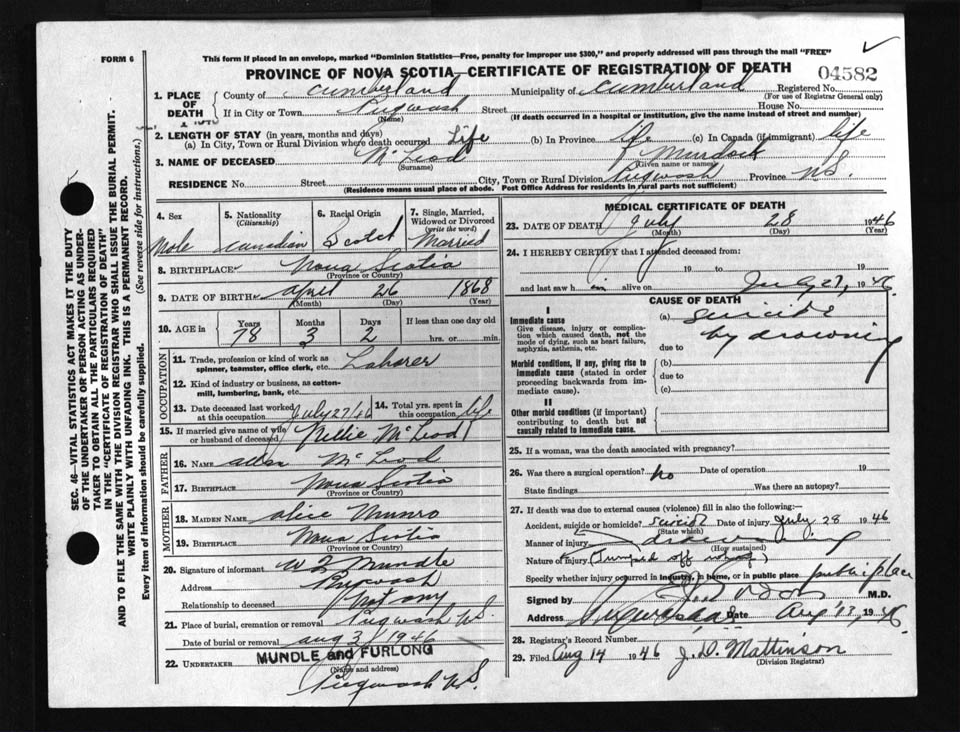 FORM 6
This form if placed in an envelope, marked "Dominion Statistics—Free, penalty for improper use $300," and properly addressed will pass through the mail "FREE"
PROVINCE OF NOVA SCOTIA—CERTIFICATE OF REGISTRATION OF DEATH
04582
1. PLACE OF DEATH
County of Cumberland Municipality of Cumberland Registered No.
(For use of Registrar General only)
If in City or Town Pugwash Street House No.
(Name) (If death occurred in a hospital or institution, give the name instead of street and number)
2. LENGTH OF STAY (in years, months and days)
(a) In City, Town or Rural Division where death occurred Life (b) In Province life (c) In Canada (if immigrant) life
3. NAME OF DECEASED McLeod Murdock
(Surname) (Given name or names)
RESIDENCE No. Street City, Town or Rural Division Pugwash Province N.S.
(Residence means usual place of abode. Post Office Address for residents in rural parts not sufficient)
4. Sex Male
5. Nationality (Citizenship) Canadian
6. Racial Origin Scotch
7. Single, Married, Widowed or Divorced (write the word) Married
8. BIRTHPLACE Nova Scotia
(Province or Country)
9. DATE OF BIRTH April 26 1868
(Month) (Day) (Year)
10. AGE in Years Months Days If less than one day
78 3 2 hrs. or min.
OCCUPATION
11. Trade, profession or kind of work as spinner, teamster, office clerk, etc. Laborer
12. Kind of industry or business, as cotton-mill, lumbering, bank, etc.
13. Date deceased last worked at this occupation July 27/46
14. Total yrs. spent in this occupation life
15. If married give name of wife or husband of deceased Nellie McLeod
FATHER
16. NAME McLeod
17. BIRTHPLACE Nova Scotia
(Province or Country)
MOTHER
18. MAIDEN NAME Alice Munro
19. BIRTHPLACE Nova Scotia
(Province or Country)
20. Signature of informant Mundle
Address Pugwash
Relationship to deceased Not any
21. Place of burial, cremation or removal Pugwash N.S.
Date of burial or removal Aug 3/1946
22. UNDERTAKER MUNDLE and FURLONG
(Name and address)
Pugwash N.S.
MEDICAL CERTIFICATE OF DEATH
23. DATE OF DEATH July 28 1946
(Month) (Day) (Year)
24. I HEREBY CERTIFY that I attended deceased from:
19 to 19
and last saw him alive on July 27, 1946
CAUSE OF DEATH
I
Immediate cause
Give disease, injury or complication which caused death, not the mode of dying, such as heart failure, asphyxia, asthenia, etc.
(a) Suicide
by drowning
due to
Morbid conditions, if any, giving rise to immediate cause (stated in order proceeding backwards from immediate cause).
(b)
due to
(c)
II
Other morbid conditions (if important) contributing to death but not causally related to immediate cause.
25. If a woman, was the death associated with pregnancy?
26. Was there a surgical operation? No Date of operation 19
State findings Was there an autopsy?
27. If death was due to external causes (violence) fill in also the following:—
Accident, suicide or homicide? Suicide Date of injury July 28 1946
(State which)
Manner of injury drowning
(How sustained)
Nature of injury (Jumped off wharf)
Specify whether injury occurred in industry, in home, or in public place public place
Signed by M.D.
Address Date Aug 13, 1946
28. Registrar's Record Number
29. Filed Aug 14 1946 J. D. Mattinson
(Division Registrar)
SEC. 46—VITAL STATISTICS ACT MAKES IT THE DUTY
OF THE UNDERTAKER OR PERSON ACTING AS UNDER-
TAKER TO OBTAIN ALL THE PARTICULARS REQUIRED
IN THE "CERTIFICATE OF REGISTRATION OF DEATH"
AND TO FILE THE SAME WITH THE DIVISION REGISTRAR WHO SHALL ISSUE THE BURIAL PERMIT.
WRITE PLAINLY WITH UNFADING INK. THIS IS A PERMANENT RECORD.
Every item of information should be carefully supplied. (See reverse side for instructions.)